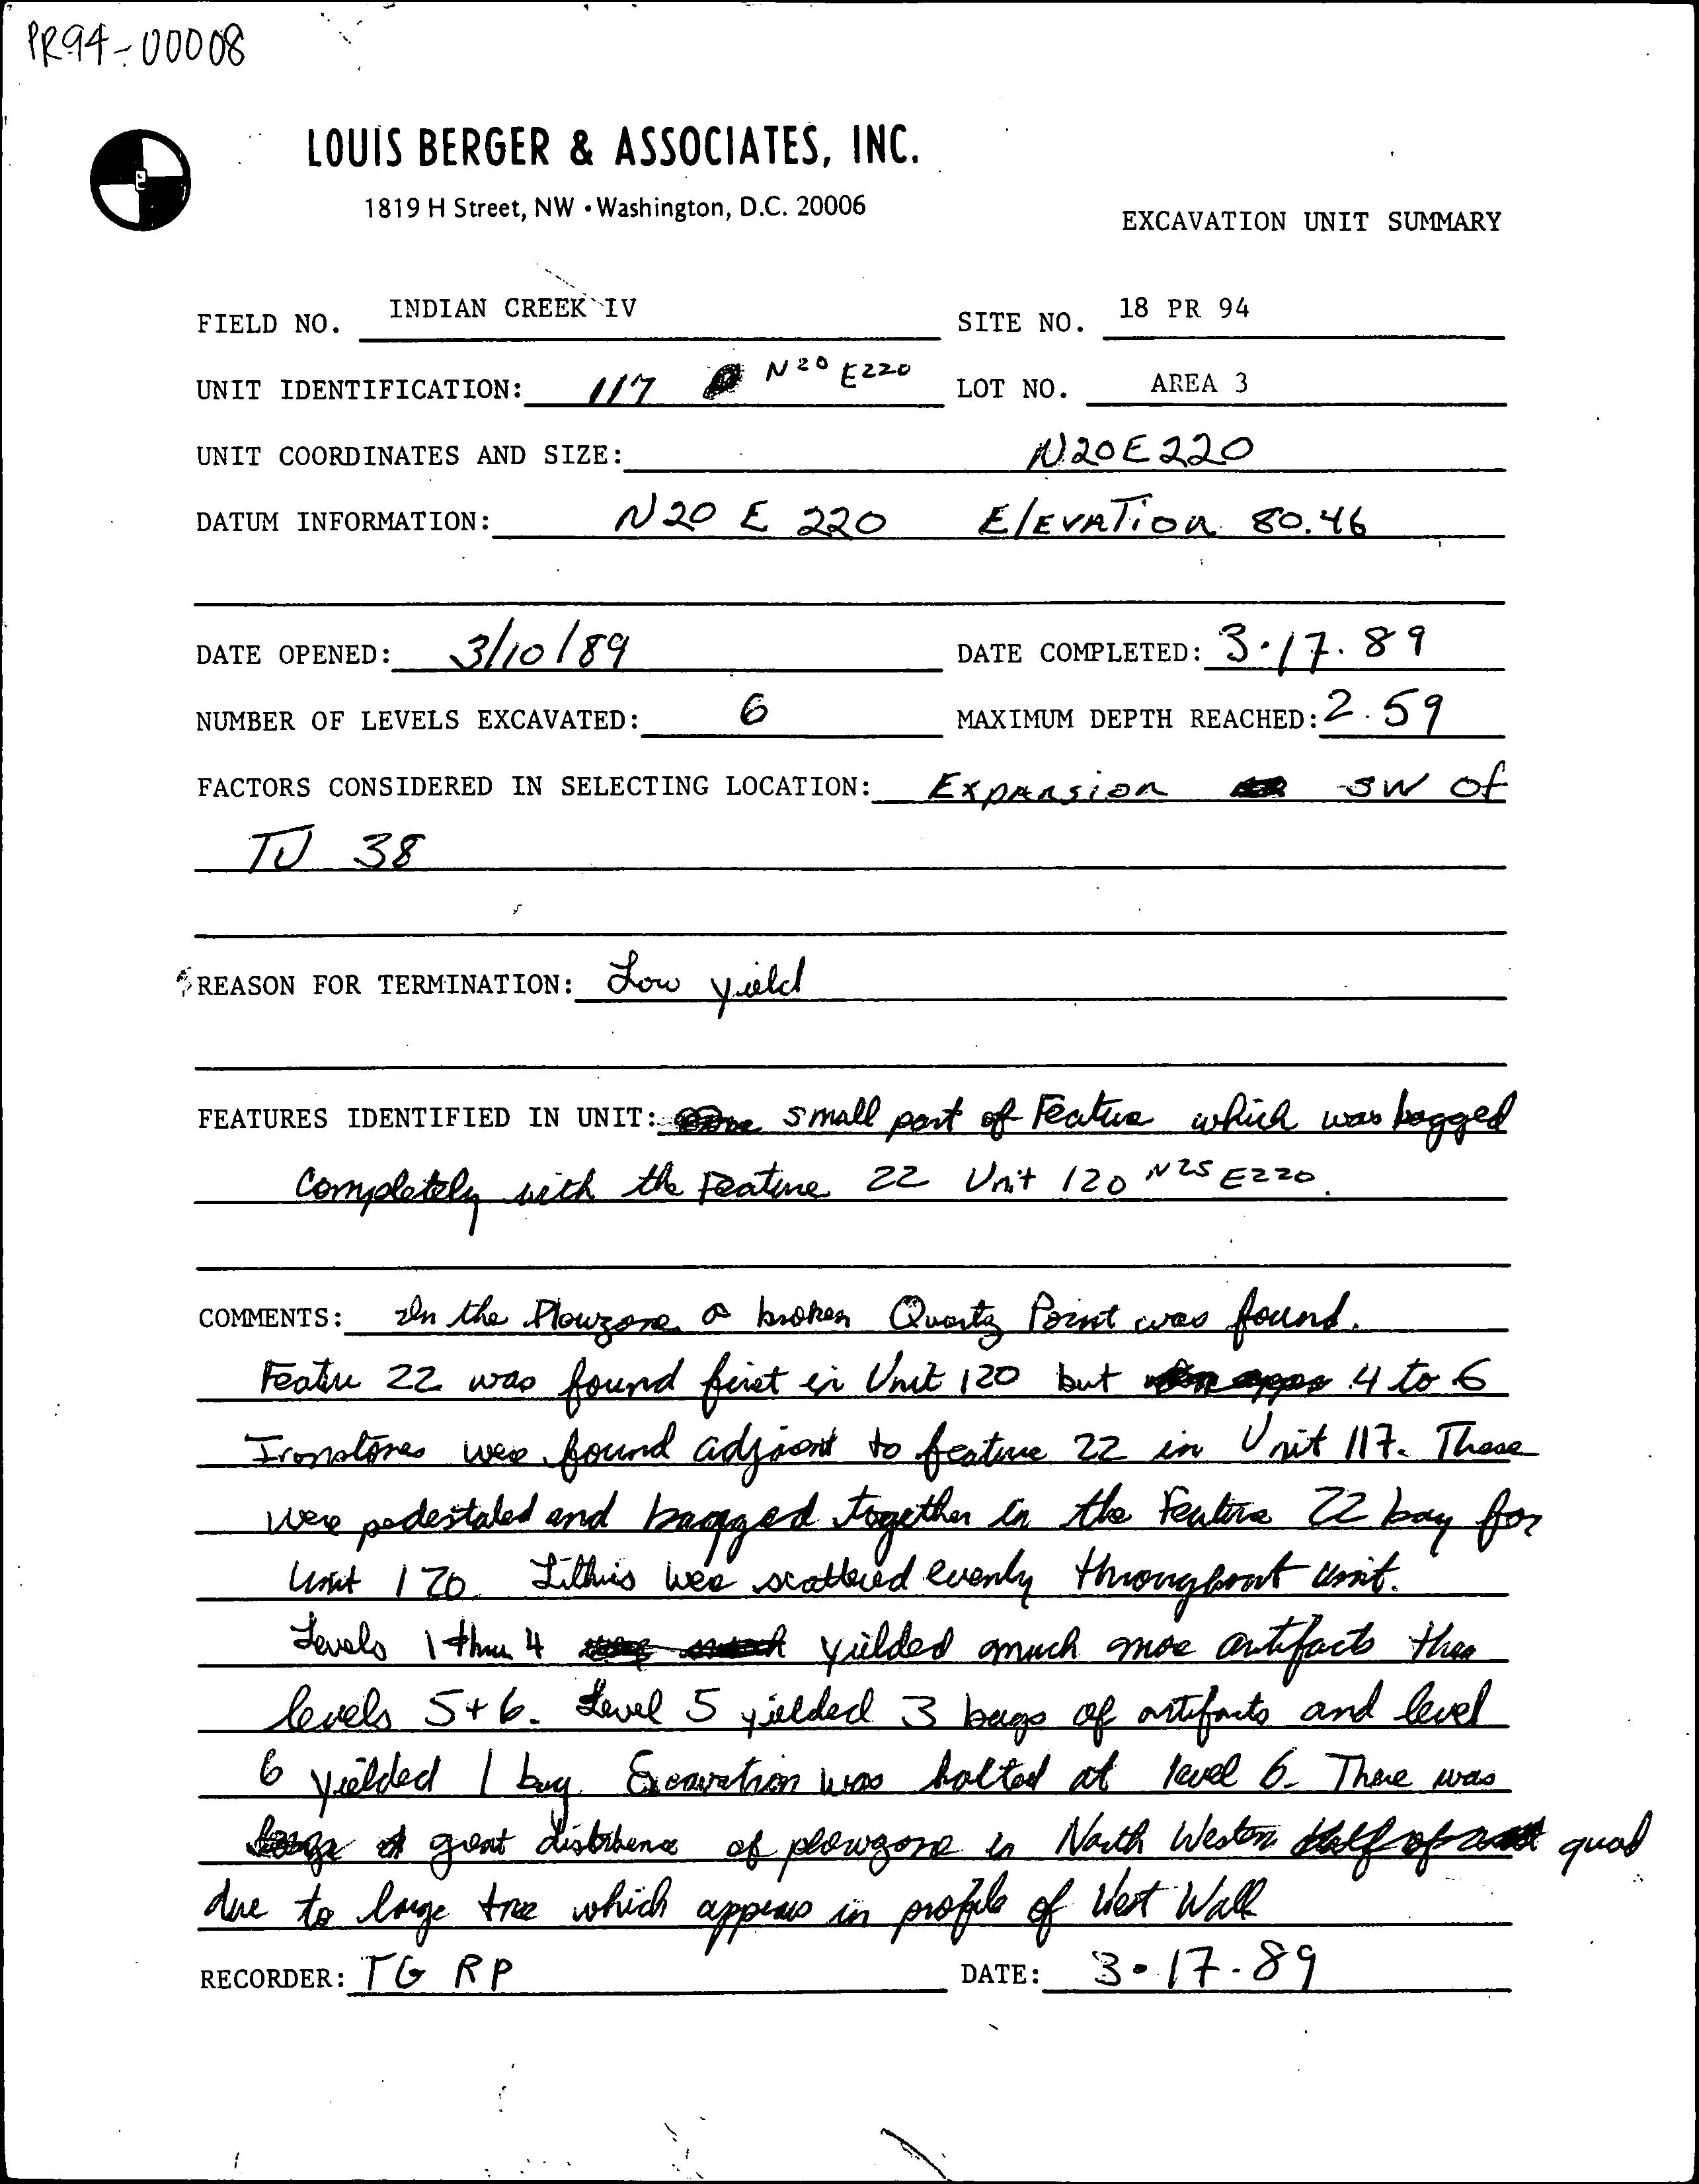 PR94-00008
LOUIS BERGER & ASSOCIATES, INC.
1819 H Street, NW • Washington, D.C. 20006
EXCAVATION UNIT SUMMARY
FIELD NO. INDIAN CREEK IV SITE NO. 18 PR 94
UNIT IDENTIFICATION: 117 N20 E220 LOT NO. AREA 3
UNIT COORDINATES AND SIZE: N20E220
DATUM INFORMATION: N20 E 220 ElEVATion 80.46
DATE OPENED: 3/10/89 DATE COMPLETED: 3.17.89
NUMBER OF LEVELS EXCAVATED: 6 MAXIMUM DEPTH REACHED: 2.59
FACTORS CONSIDERED IN SELECTING LOCATION: Expansion SW of
TU 38
REASON FOR TERMINATION: Low yield
FEATURES IDENTIFIED IN UNIT: small part of Feature which was bagged
Completely with the Feature 22 Unit 120 N25 E220.
COMMENTS: In the Plowzone a broken Quartz Point was found.
Featu 22 was found first in Unit 120 but 4 to 6
Ironstones were found adjacent to feature 22 in Unit 117. These
were pedestaled and bagged together in the Feature 22 bag for
Unit 120 Lithics were scattered evenly throughout unit.
Levels 1 thru 4 yielded much more artifacts than
levels 5+6. Level 5 yielded 3 bags of artifacts and level
6 yielded 1 bag Excavation was halted at level 6. There was
great distrbence of plowzone in North Western quad
due to large tree which appears in profile of West Wall
RECORDER: TG RP DATE: 3.17.89